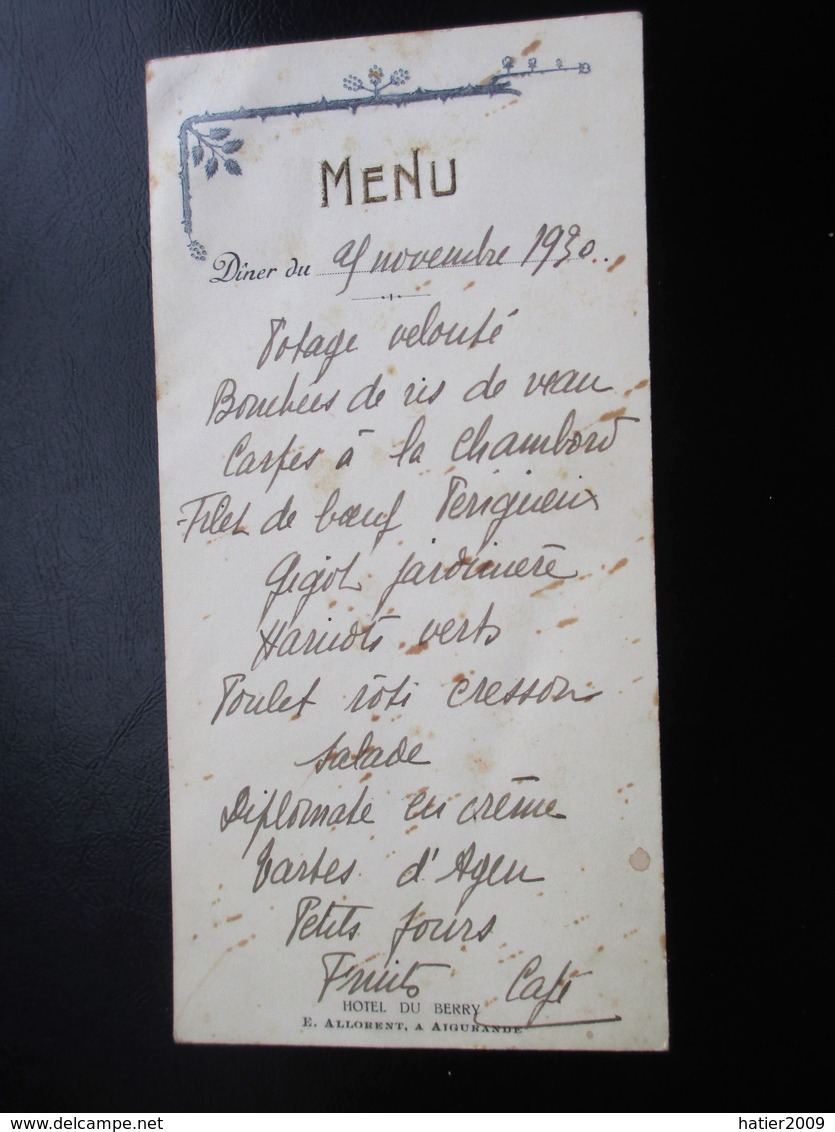 MENU
Dîner du 25 novembre 1930
Potage velouté
Bouchées de ris de veau
Carpes à la Chambord
Filet de bœuf Périgueux
Gigot jardinière
Haricots verts
Poulet rôti cresson
Salade
Diplomate en crème
Tartes d'Agen
Petits fours
Fruits Café
HOTEL DU BERRY
E. ALLORENT, A AIGURANDE
delcampe.net
hatier2009